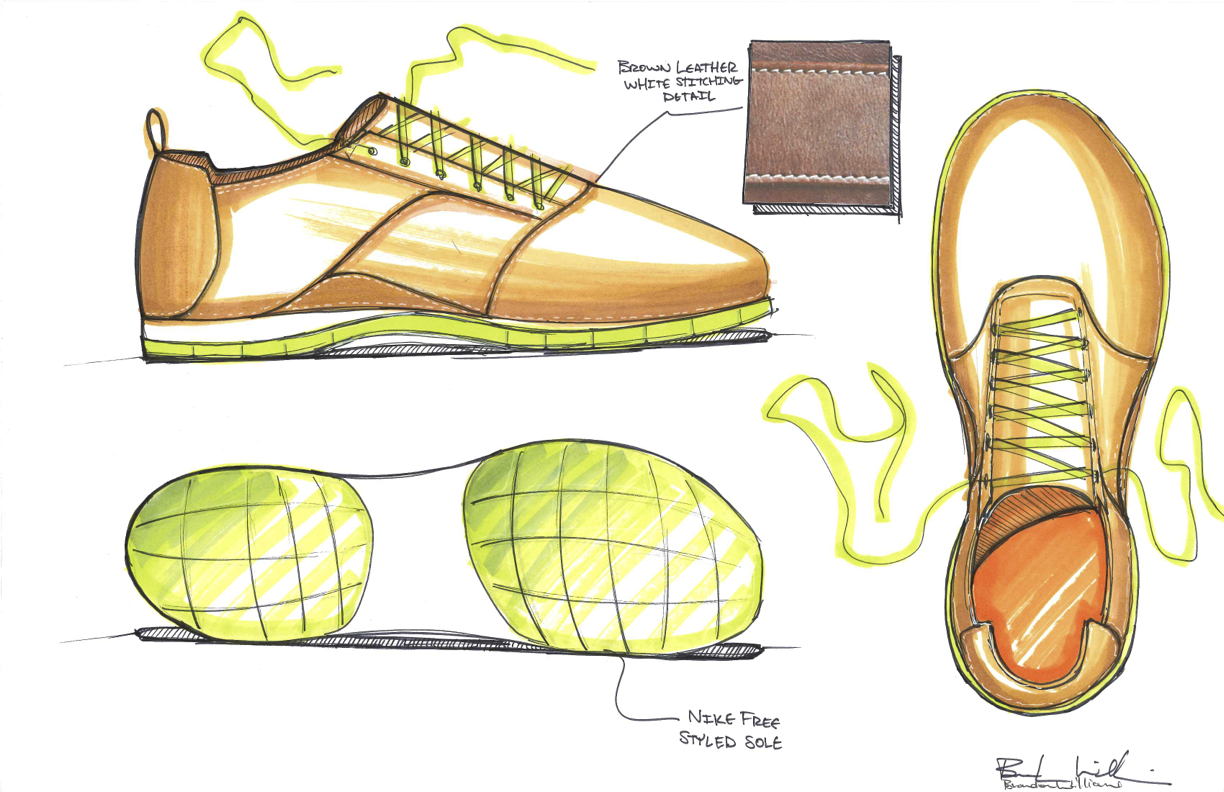 BROWN LEATHER
WHITE STITCHING
DETAIL
NIKE FREE
STYLED SOLE
Brandon Williams